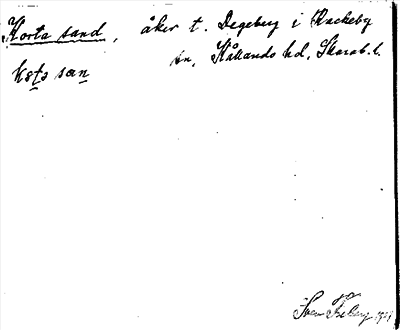 Korta sand, åker t. Degeberg i Rackeby
sn, Kållands hd, Skarab. l.
kor̲t̲a san̲
Sven